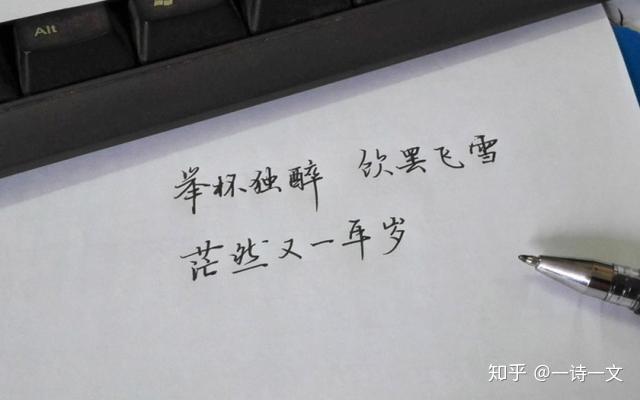 Alt
举杯独醉 饮罢飞雪
茫然又一年岁
知乎 @一诗一文